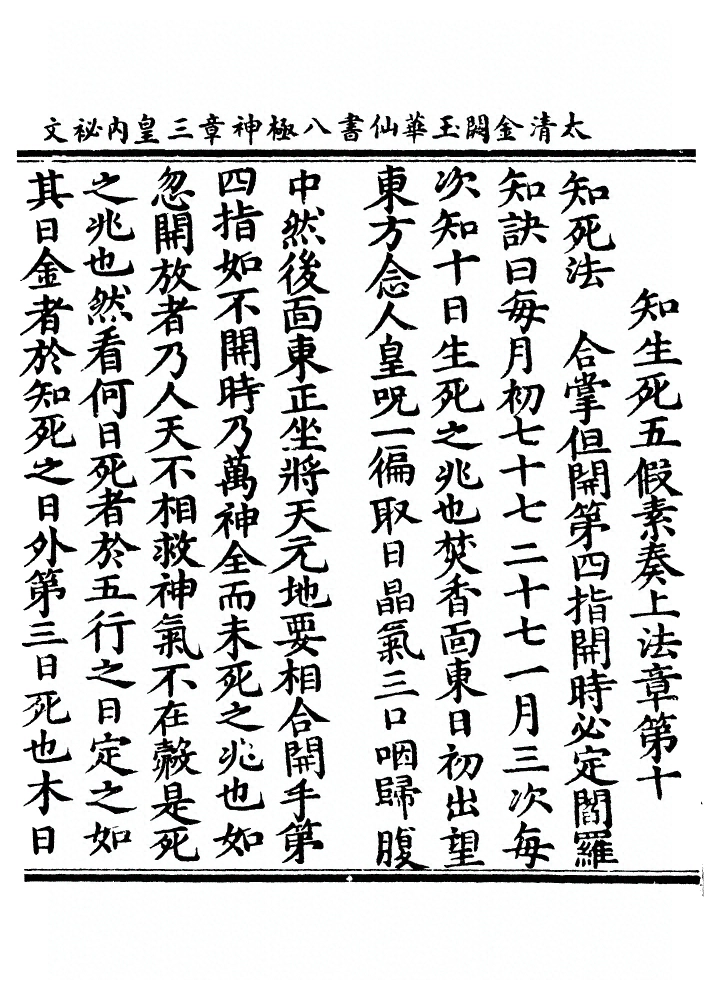 太清金闕玉華仙書八極神章三皇內祕文
知生死五假素奏上法章第十
知死法　合掌但開第四指開時必定閻羅
知訣曰每月初七十七二十七一月三次每
次知十日生死之兆也焚香面東日初出望
東方念人皇呪一徧取日晶氣三口咽歸腹
中然後面東正坐將天元地要相合開手第
四指如不開時乃萬神全而未死之兆也如
忽開放者乃人天不相救神氣不在㱿是死
之兆也然看何日死者於五行之日定之如
其日金者於知死之日外第三日死也木日